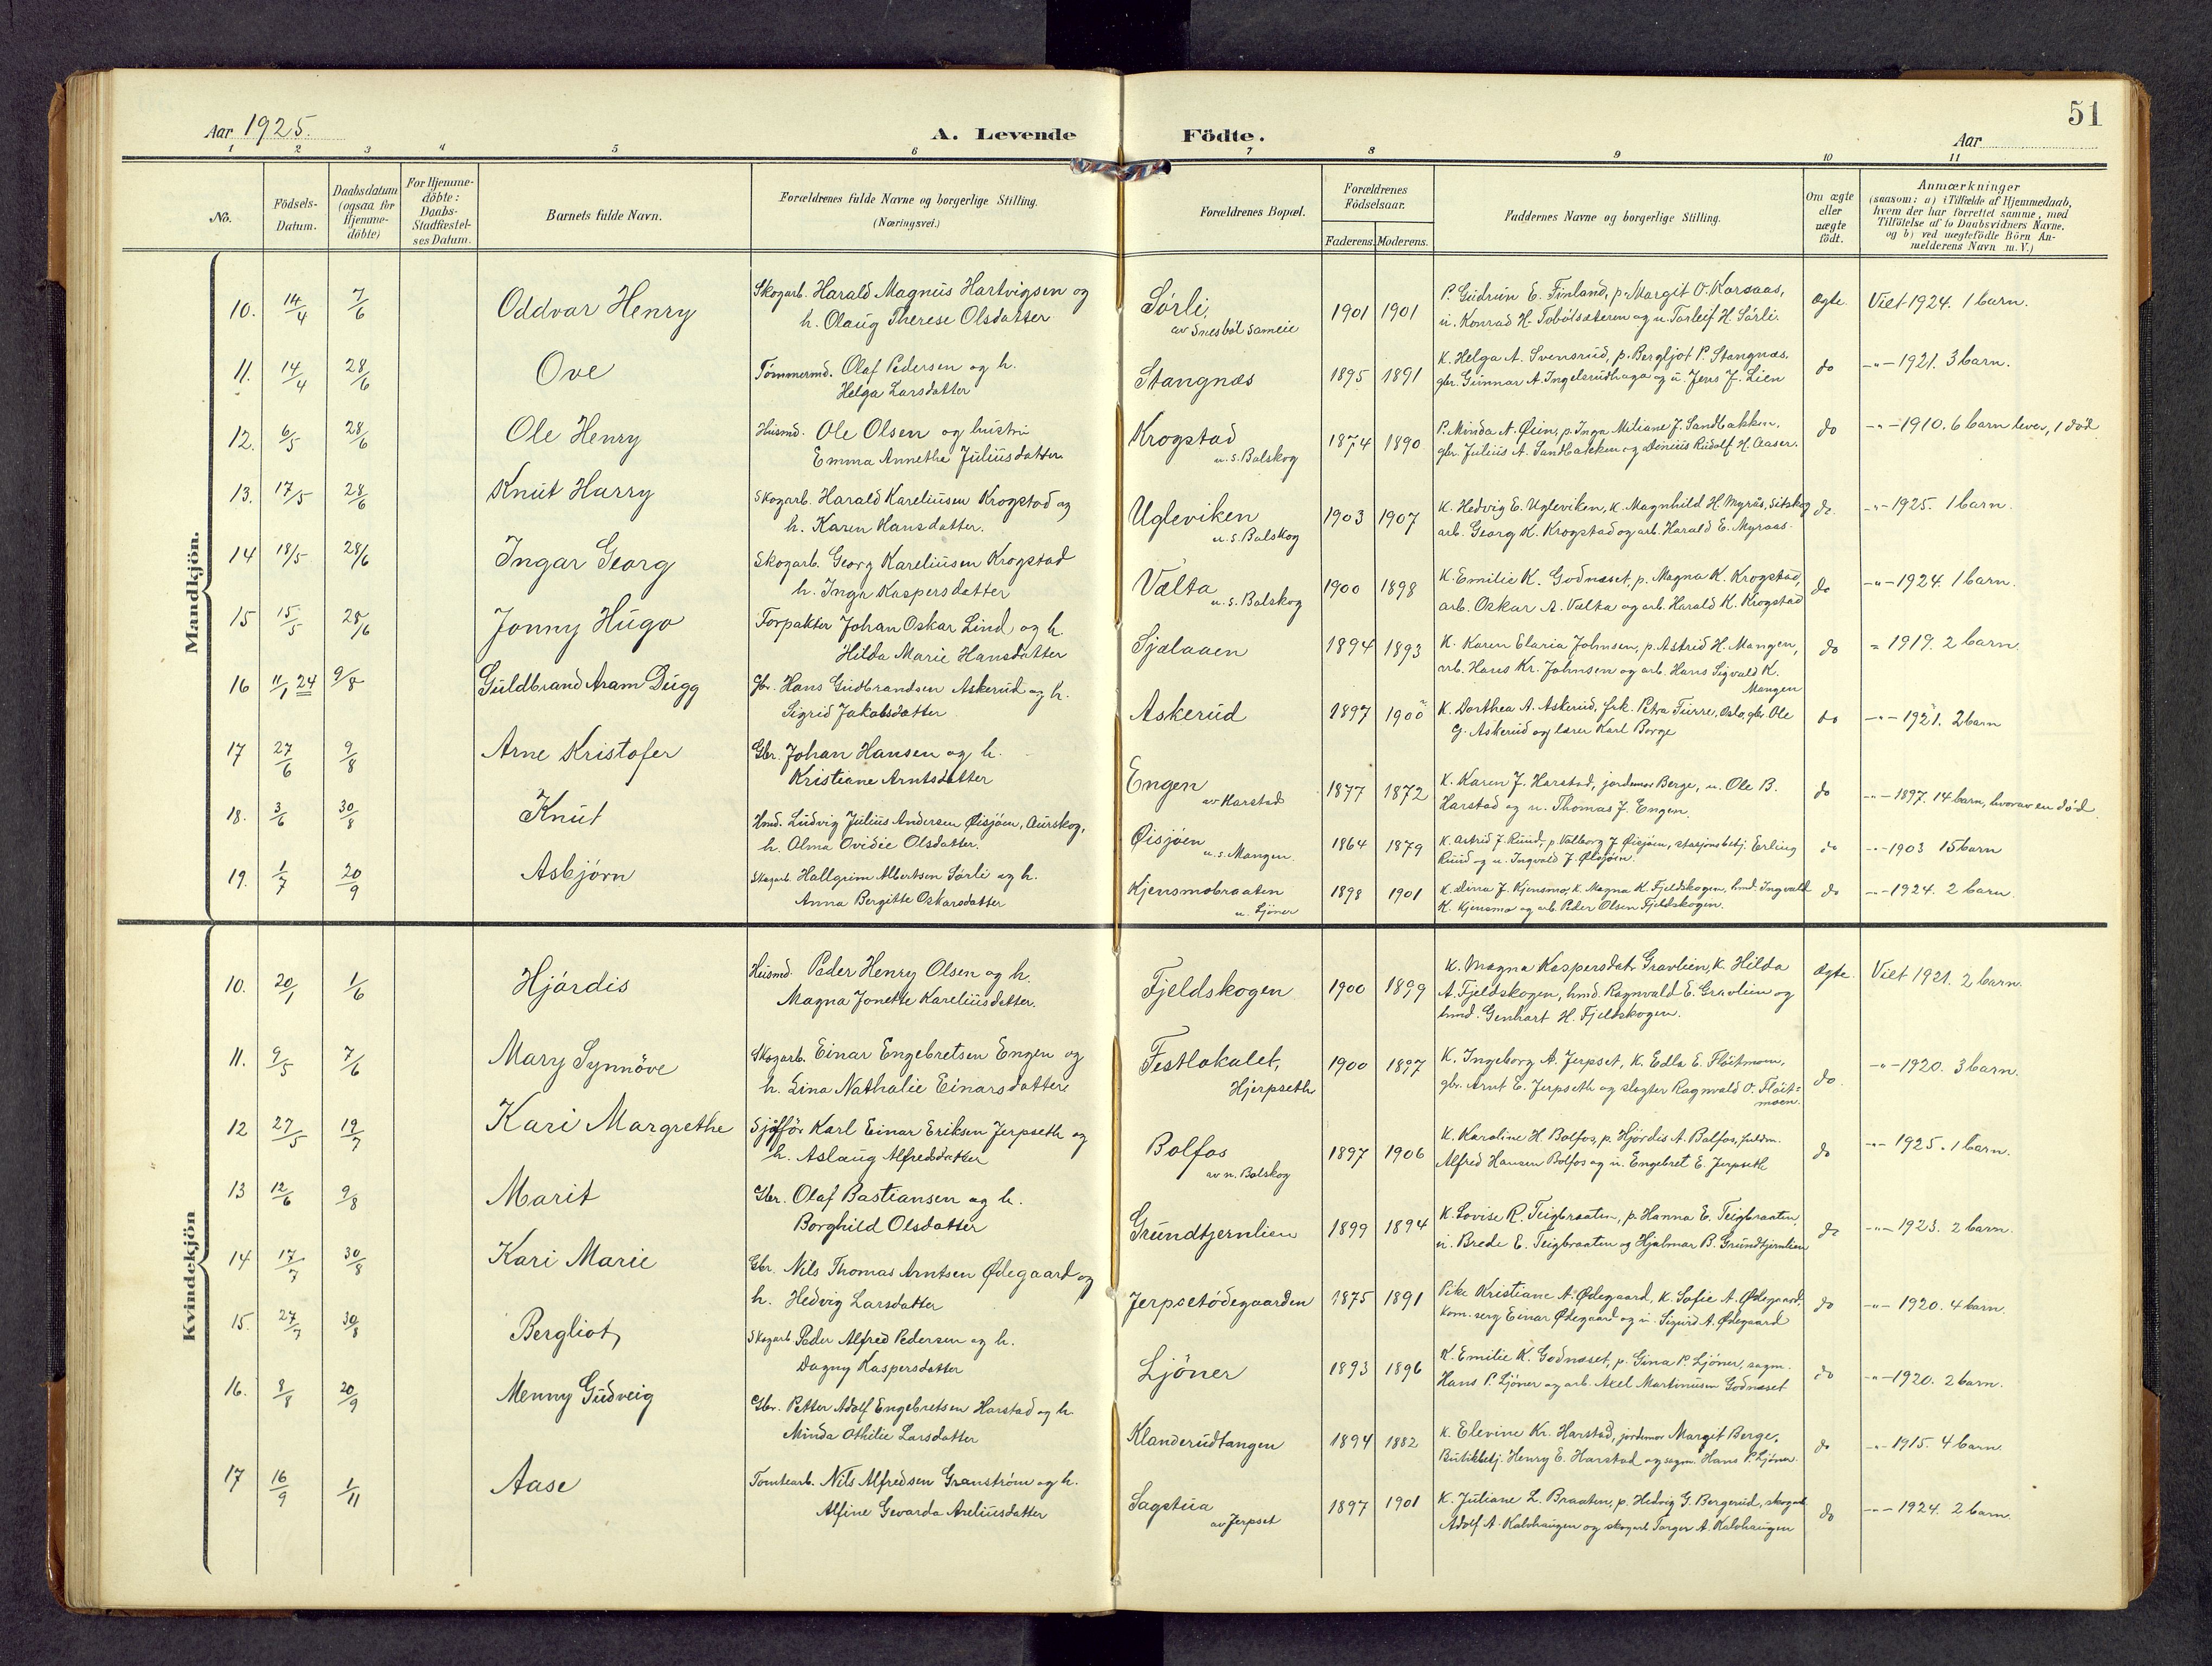 51
Aar 1925.
A. Levende Födte.
Aar
1 2 3 4 5 6 7 8 9 10 11
No.
Födsels-Datum.
Daabsdatum (ogsaa for Hjemme-döbte)
For Hjemme-döbte: Daabs-Stadfæstel-ses Datum.
Barnets fulde Navn.
Forældrenes fulde Navne og borgerlige Stilling.
(Næringsvei.)
Forældrenes Bopæl.
Forældrenes Födselsaar.
Faderens. Moderens.
Faddernes Navne og borgerlige Stilling.
Om ægte eller uægte födt.
Anmærkninger
(saasom: a) i Tilfælde af Hjemmedaab,
hvem der har forrettet samme, med
Tilföielse af to Daabsvidners Navne.
og b) ved uægtefödte Börn An-
melderens Navn m. V.)
Mandkjön.
10. 14/4 7/6 Oddvar Henry Skogarb. Harald Magnus Hartvigsen og
h. Olaug Therese Olsdatter
Sørli,
av Snesböl sameie
1901 1901
P. Gudrun E. Finland, p. Margit O. Korsaas,
u. Konrad H. Tobölsæteren og u. Torleif H. Sörli.
ægte Viet 1924. 1 barn.
11. 14/4 28/6 Ove Tömmermd. Olaf Pedersen og h.
Helga Larsdatter
Stangnæs 1895 1891
K. Helga A. Svensrud, p. Bergljot P. Stangnæs.
gbr. Gunnar A. Ingelsrudhaga og u. Jens J. Lien
do -"- 1921. 3 barn.
12. 6/5 28/6 Ole Henry Husmd. Ole Olsen og hustru
Emma Annethe Juliusdatter
Krogstad
u. s. Bolskog
1874 1890
P. Minda A. Øien, p. Inga Miliane J. Sandbakken.
gbr. Julius A. Sandbakken og Dinius Rudolf H. Aaser.
do -"- 1910. 6 barn lever, 1 död
13. 17/5 28/6 Knut Harry Skogarb. Harald Kareliusen Krogstad og
h. Karen Hansdatter.
Ugleviken
u. s. Bolskog
1903 1907
K. Hedvig E. Ugleviken, K. Magnhild H. Myrås, Setskog
arb. Georg K. Krogstad og arb. Harald E. Myraas.
do. -"- 1925. 1 barn.
14 18/5 28/6 Ingar Georg Skogarb. Georg Kareliusen Krogstad
h. Inga Kaspersdatter
Vælta
u. s. Bolskog
1900 1898
K. Emilie K. Godnæset, p. Magna K. Krogstad,
arb. Oskar A. Vælta og arb. Harald K. Krogstad
do -"- 1924. 1 barn.
15 15/5 28/6 Jonny Hugo Forpakter Johan Oskar Lind og h.
Hilda Marie Hansdatter
Sjølaaen 1894 1893
K. Karen Elaria Johnsen, p. Astrid H. Mangen,
arb. Hans Kr. Johnsen og arb. Hans Sigvald K.
Mangen
do " 1919. 2 barn.
16 11/1 24 9/8 Guldbrand Aram Dugg Gbr. Hans Gudbrandsen Askerud og h.
Sigrid Jakobsdatter
Askerud 1897 1900
K. Dorthea A. Askerud, frk. Petra Turre, Oslo, gbr. Ole
G. Askerud og lærer Karl Borge
do -"- 1921. 2 barn
17 27/6 9/8 Arne Kristofer Gbr. Johan Hansen og h.
Kristiane Arntsdatter
Engen
av Harstad
1877 1872
K. Karen J. Harstad, jordemor Berge, u. Ole B.
Harstad og u. Thomas J. Engen.
do -"- 1897. 14 barn, hvorav en död.
18. 3/6 30/8 Knut Hmd. Ludvig Julius Andersen Øisjøen, Aurskog,
h. Olma Ovidie Olsdatter.
Øisjøen
u. s. Mangen.
1864 1879
K. Astrid J. Ruud, p. Valborg J. Øisjøen, stasjonsbetj. Erling
Ruud og u. Ingvald J. Øisjøen.
do -"- 1903 15 barn
19. 1/7 20/9 Asbjörn Skogarb. Hallgrim Albertsen Sörli og h.
Anna Bergitte Oskarsdatter
Kjensmobraaten
u. Ljöner
1898 1901
K. Dina J. Kjensmo, K. Magna K. Fjeldskogen, hmd. Ingvald
K. Kjensmo og arb. Peder Olsen Fjeldskogen.
do -"- 1924. 2 barn.
Kvindekjön
10. 20/1 1/6 Hjördis Husmd. Peder Henry Olsen og h.
Magna Jonette Kareliusdatter.
Fjeldskogen 1900 1899
K. Magna Kaspersdatr Gravlien, K. Hilda
A. Fjeldskogen, hmd. Ragnvald E. Gravlien og
hmd. Genhart H. Fjeldskogen.
Ægte. Viet 1921. 2 barn.
11. 9/5 7/6 Mary Synnöve Skogarb. Einar Engebretsen Engen og
h. Lina Nathalie Einarsdatter
Festlokalet,
Hjerpseth
1900 1897
K. Ingeborg A. Jerpset, K. Edla E. Flöitmoen,
gbr. Arnt E. Jerpseth og slagter Ragnvald O. Flöit-
moen.
do. -"- 1920. 3 barn.
12 27/5 19/7 Kari Margrethe Sjåfför Karl Einar Eriksen Jerpseth og
h. Aslaug Alfredsdatter
Bolfos
av n. Bolskog
1897 1906
K. Karoline H. Bolfos, p. Hjördis A. Bolfos, fuldm.
Alfred Hansen Bolfos og u. Engebret E. Jerpseth
do -"- 1925. 1 barn.
13 12/6 9/8 Marit Gbr. Olaf Bastiansen og h.
Borghild Olsdatter
Grundtjernlien 1899 1894
K. Lovise R. Teigbraaten, p. Hanna E. Teigbraaten,
u. Brede E. Teigbraaten og Hjalmar B. Grundtjernlien
do -"- 1923. 2 barn.
14 17/7 30/8 Kari Marie Gbr. Nils Thomas Arntsen Ødegaard og
h. Hedvig Larsdatter
Jerpsetödegaarden 1875 1891
Pike Kristiane A. Ødegaard, K. Sofie A. Ødegaard,
Kom. serg Einar Ødegaard og u. Sigurd A. Ødegaard
do -"- 1920. 4 barn.
15. 27/7 30/8 Bergliot, Skogarb Peder Alfred Pedersen og h.
Dagny Kaspersdatter
Ljöner 1893 1896
K. Emilie K. Godnæset, p. Gina P. Ljöner, sagm.
Hans P. Ljöner og arb. Axel Martinusen Godnæset
do -"- 1920. 2 barn.
16. 8/8 20/9 Menny Gudveig Gbr. Petter Adolf Engebretsen Harstad og h.
Minda Othilie Larsdatter
Klanderudtangen 1894 1882
K. Elevine Kr. Harstad, jordemor Margit Berge,
Butikbetj. Henry E. Harstad og sagm. Hans P. Ljöner.
do -"- 1915. 4 barn.
17 16/9 1/11 Aase Tomtearb. Nils Alfredsen Granström og h.
Alfine Gevarda Areliusdatter
Sagstua
av Jerpset
1897 1901
K. Juliane L. Braaten, p. Hedvig G. Bergerud, skogarb
Adolf A. Kalvhaugen og skogarb Torger A. Kalvhaugen
do -"- 1924. 2 barn.